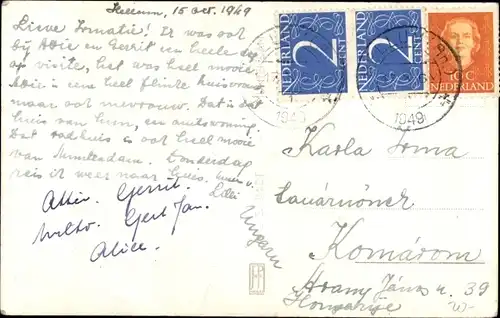 15 oct. 1949
Lieve Irmatie! Ik was ook
bij Attie en Gerrit een heele dag
op visite, het was heel mooi
Attie is een heel flinke huisvrouw
maar ook mevrouw. Dat is dat
huis van hun, een ambtswoning.
Dat radhuis is ook heel mooi
van Amsterdam. Donderdag
reis ik weer naar huis.
Lilli
Gerrit.
Gert Jan.
Alice.
NEDERLAND
2
CENT
NEDERLAND
2
CENT
10 C
NEDERLAND
1949
1949
Karla Irma
tanárnőnek
Komárom
Arany János u. 39
Hongarije
Ungarn